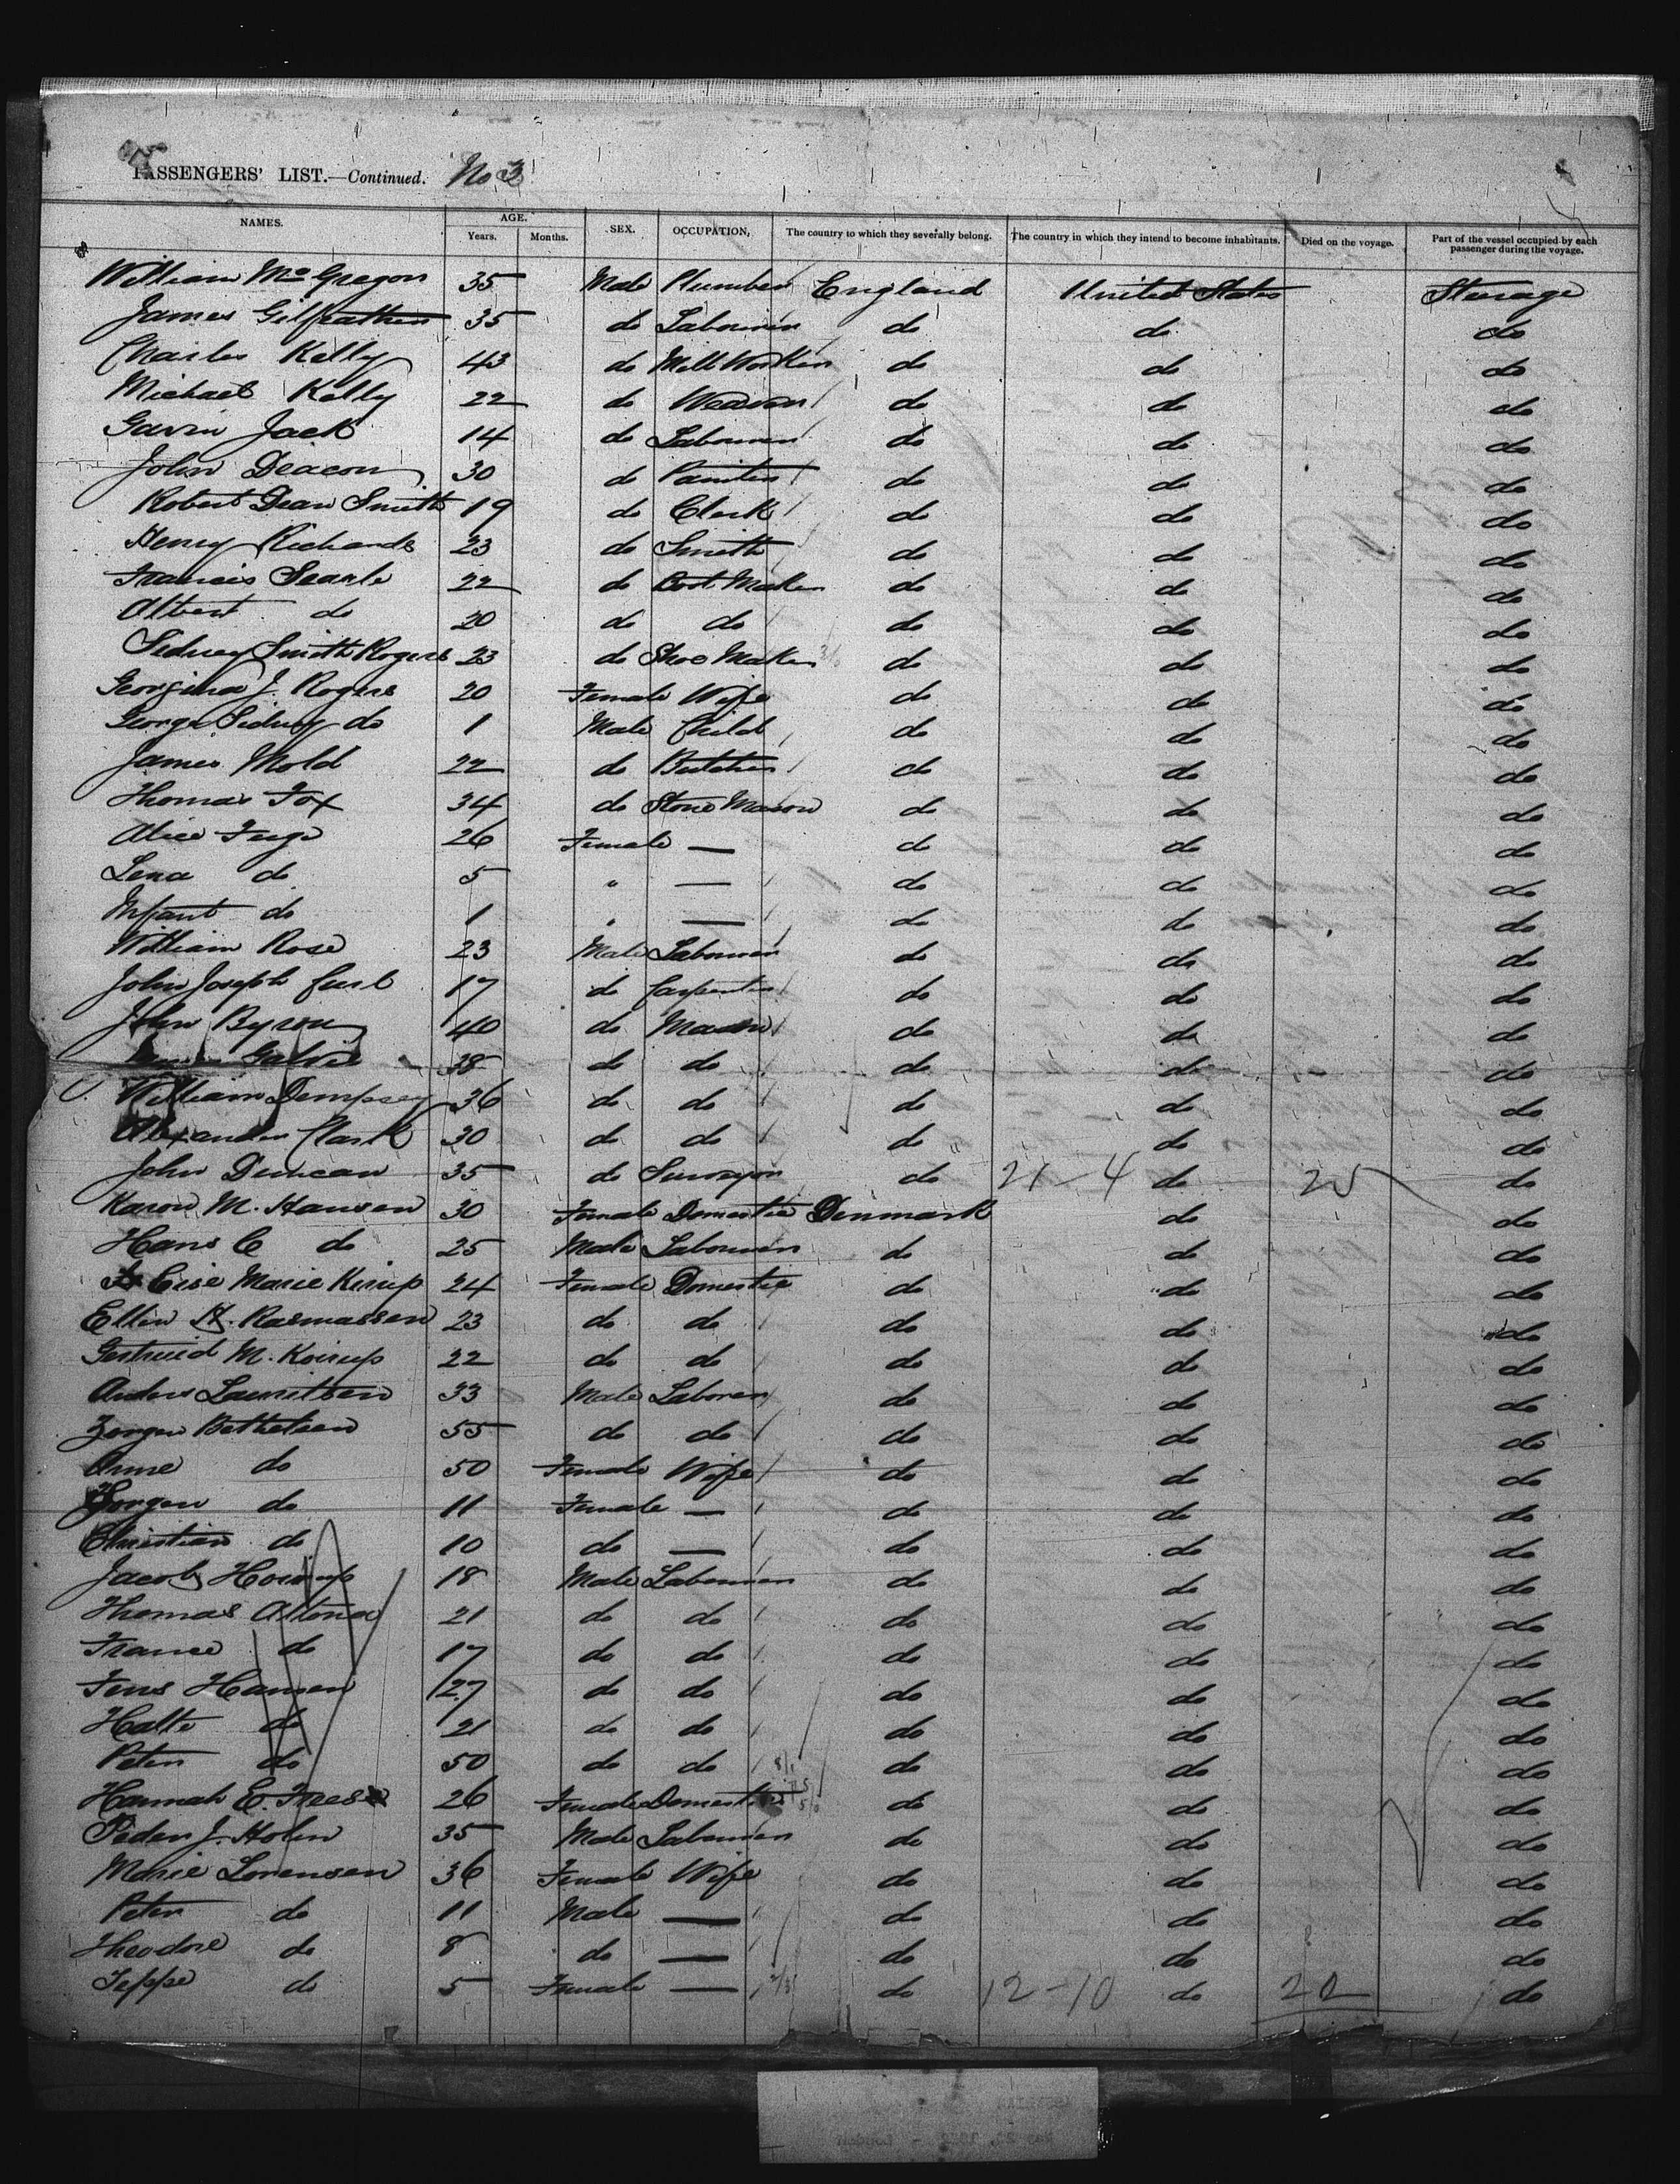 PASSENGERS' LIST.—Continued. No 3
NAMES. AGE. Years. Months. SEX. OCCUPATION, The country to which they severally belong. The country in which they intend to become inhabitants. Died on the voyage. Part of the vessel occupied by each passenger during the voyage.
William McGregor 35 Male Plumber England United States Sterage
James Gilfeather 35 do Labourer do do do
Charles Kelly 43 do Mill Worker do do do
Michael Kelly 22 do Weaver do do do
Gavin Jack 14 do Labourer do do do
John Deacon 30 do Painter do do do
Robert Dean Smith 19 do Clerk do do do
Henry Richards 23 do Smith do do do
Francis Searle 22 do Boot Maker do do do
Albert do 20 do do do do do
Sidney Smith Rogers 23 do Shoe Maker do do do
Georgina J. Rogers 20 Female Wife do do do
George Sidney do 1 Male Child do do do
James Mold 22 do Butcher do do do
Thomas Fox 34 do Stone Mason do do do
Alice 26 Female — do do do
Lena do 5 " — do do do
Infant do 1 " — do do do
William Rose 23 Male Labourer do do do
John Joseph 17 do Carpenter do do do
John Byron 40 do Mason do do do
38 do do do do do
William Dempsey 36 do do do do do
Alexander Clark 30 do do do do do
John Duncan 35 do Surveyor do 21-4 do 25 do
Karen M. Hansen 30 Female Domestic Denmark do do
Hans C do 25 Male Labourer do do do
Marie 24 Female Domestic do do do
Ellin H. Rasmussen 23 do do do do do
Gertruid M. 22 do do do do do
Anders Lauritsen 33 Male Laborer do do do
Bethelsen 55 do do do do do
Anne do 50 Female Wife do do do
Jorgen do 11 Female — do do do
Christian do 10 do — do do do
Jacob 18 Male Labourer do do do
Thomas Altona 21 do do do do do
do 17 do do do do do
Hansen 27 do do do do do
do 21 do do do do do
Peter do 50 do do do do do
Hannah E. 26 Female Domestic do do do
Peder J. Holm 35 Male Labourer do do do
Marie Lorensen 36 Female Wife do do do
Peter do 11 Male — do do do
Theodore do 8 do — do do do
Jeppe do 5 Female — do 12-10 do 22 do